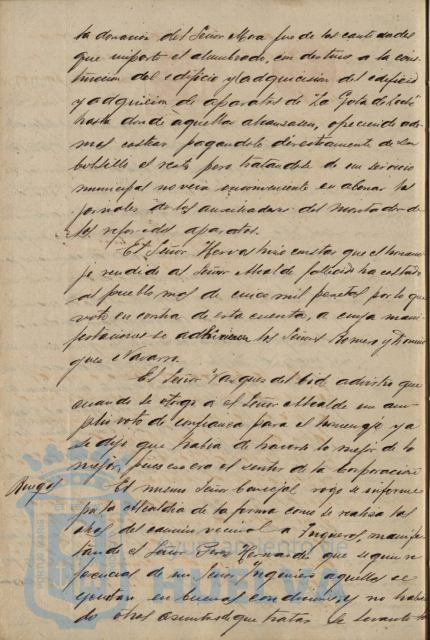 la donación del Señor Mora fue de las cantidades
que importe el alumbrado, con destino a la cons-
trucción del edificio y la adquicision del edificio
y adquicion de aparatos de "La Gota de Leche"
hasta donde aquellas alcanzasen, ofreciendo ade-
mas costear pagandole directamente de su
bolsillo el resto pero tratandose de un servicio
municipal no veia inconveniente en abonar los
jornales de los auxiliares del montador de
los referidos aparatos.
El Señor Hervas hizo constar que el homena-
je rendido al Señor Alcalde fallecido ha costado
al pueblo mas de cinco mil pesetas por lo que
votó en contra de esta cuenta, a cuyas mani-
festaciones se adhirieron los Señores Romero y Domin-
guez
El Señor Vazquez del Cid advirtio que
cuando se otorgo a el Señor Alcalde un am-
plio voto de confianza para el homenaje ya
se dijo que habia de hacerse lo mejor de lo
mejor, pues ese era el sentir de la Corporación
Ruegos
El mismo Señor Concejal rogo se informe
por la Alcaldia de la forma como se realiza las
obras del camino vecinal a manifes-
tando el Señor Perez Hernandez que segun re-
ferencias de un Señor Ingeniero aquellas se
ejecutan en buenas condiciones y no habien-
do otros asuntos de que tratar se levanto la